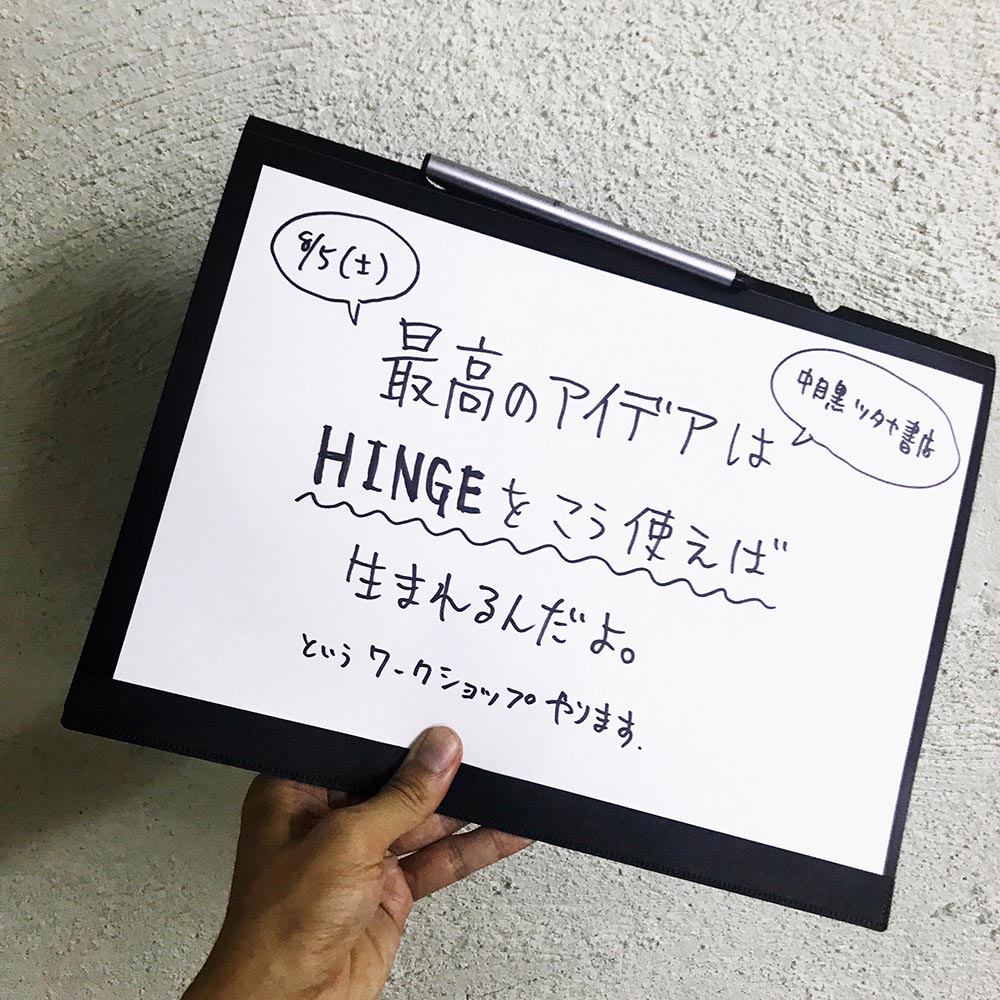 8/5(土)
最高のアイデアは
中目黒ツタヤ書店
HINGEをこう使えば
生まれるんだよ。
というワークショップやります.